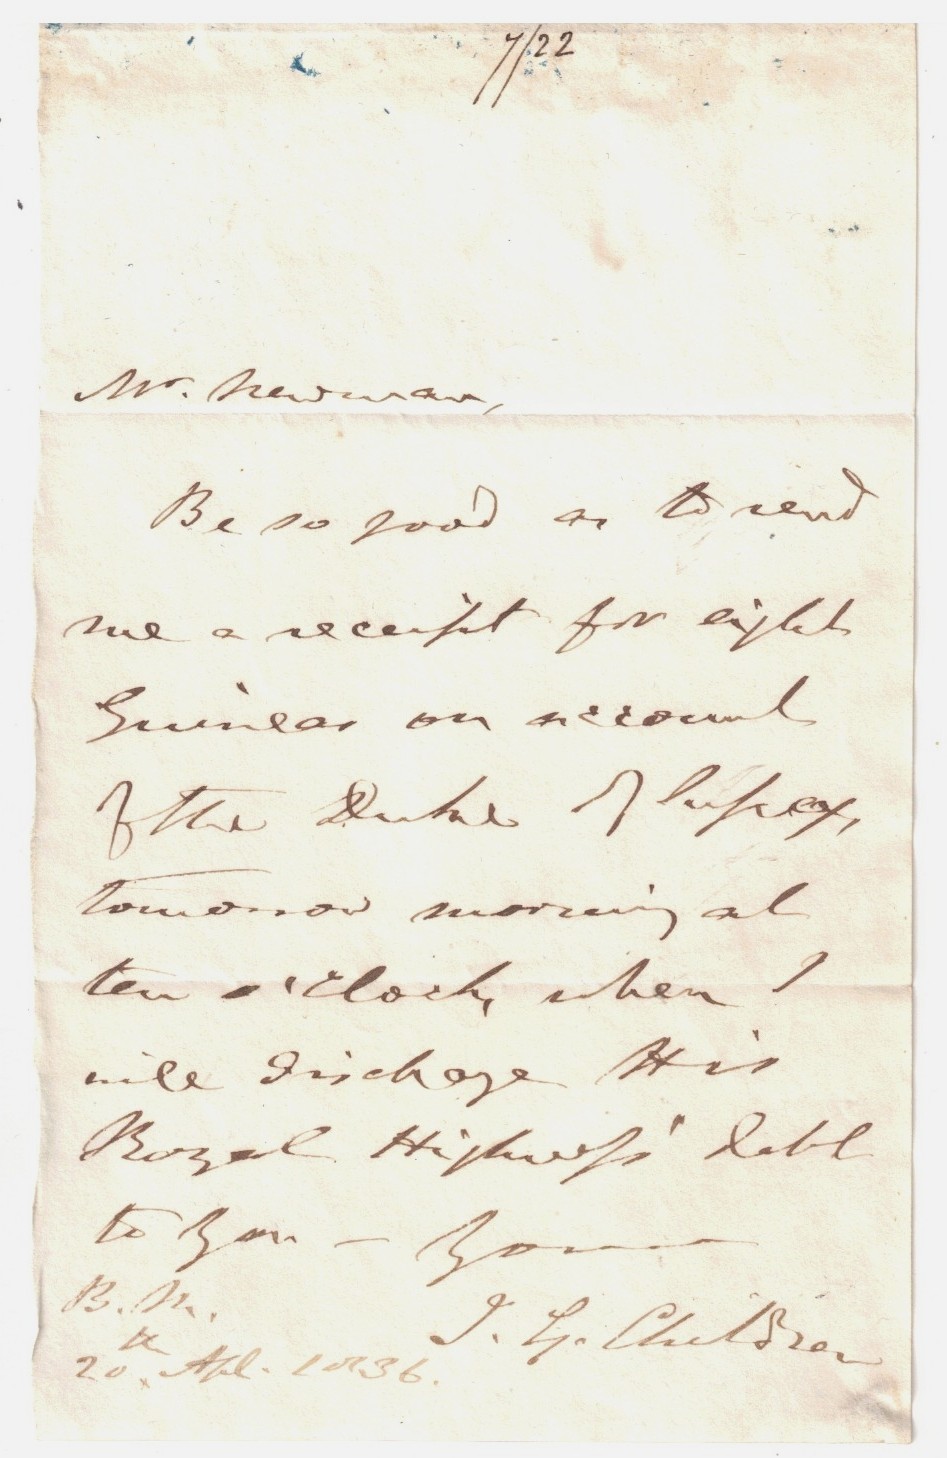 7/22
Mr. Newman,
Be so good as to send
me a receipt for eight
Guineas on account
of the Duke of Sussex,
tomorrow morning at
ten o'Clock, when I
will discharge His
Royal Highness' debt
to you — Yours
J. G. Children
B. M.
20th Apl. 1836.